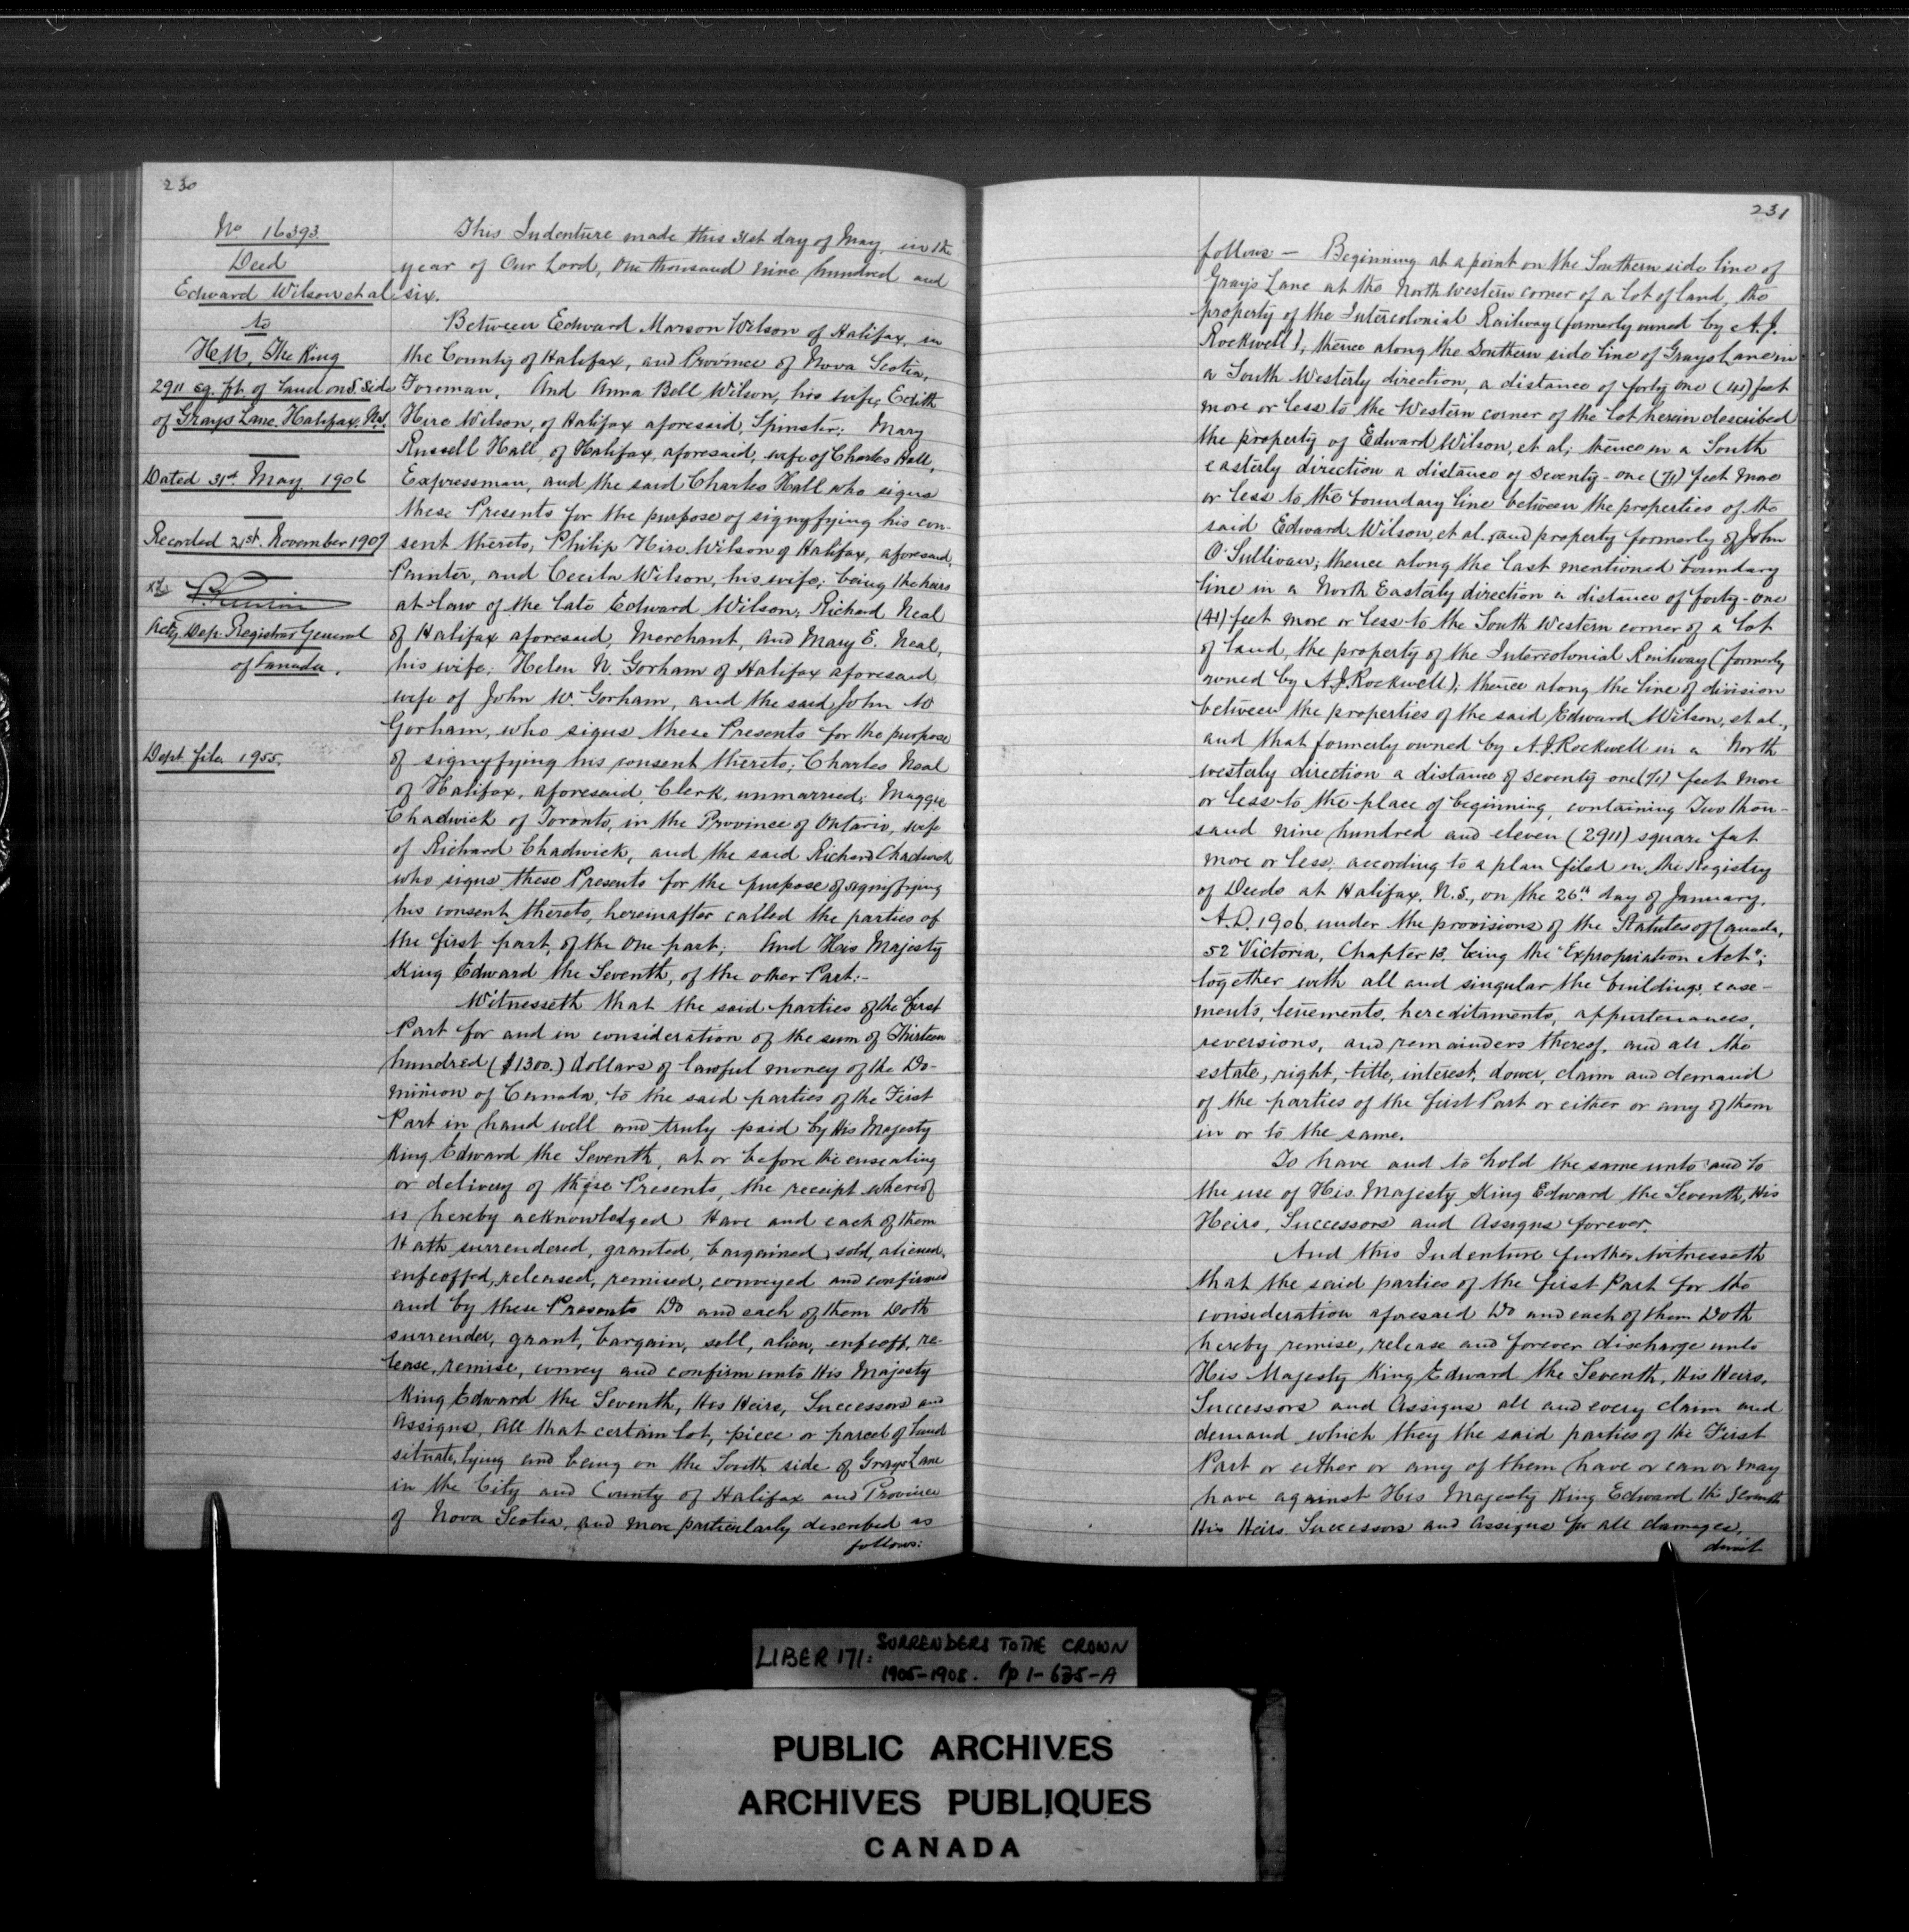 230
No 16393.
Deed
Edward Wilson et al
to
H.M. The King
2911 sq. ft. of land on S. Side
of Grays Lane. Halifax, N.S.
Dated 31st May 1906
Recorded 21st November 1907
Actg Dep. Registrar General
of Canada.
Dept. file 1955.
This Indenture made this 31st day of May, in the
year of Our Lord, One thousand nine hundred and
six.
Between Edward Marson Wilson of Halifax, in
the County of Halifax, and Province of Nova Scotia,
Foreman, And Anna Bell Wilson, his wife, Edith
Hire Wilson, of Halifax aforesaid, Spinster; Mary
Russell Hall, of Halifax, aforesaid, wife of Charles Hall,
Expressman, and the said Charles Hall who signs
these Presents for the purpose of signyfying his con-
sent thereto, Philip Hire Wilson of Halifax, aforesaid,
Painter, and Cecila Wilson, his wife; being the heirs
at-law of the late Edward Wilson; Richard Neal
of Halifax aforesaid, Merchant, and Mary E. Neal,
his wife; Helen N. Gorham of Halifax aforesaid,
wife of John W. Gorham, and the said John W
Gorham, who signs these Presents for the purpose
of signyfying his consent thereto; Charles Neal
of Halifax, aforesaid, Clerk, unmarried; Maggie
Chadwick of Toronto, in the Province of Ontario, wife
of Richard Chadwick, and the said Richard Chadwick
who signs these Presents for the purpose of signyfying
his consent thereto, hereinafter called the parties of
the first part, of the One part; And His Majesty
King Edward the Seventh, of the other Part:-
Witnesseth that the said parties of the first
Part for and in consideration of the sum of Thirteen
hundred ($1300.) dollars of lawful money of the Do-
minion of Canada, to the said parties of the First
Part in hand well and truly paid by His Majesty
King Edward the Seventh, at or before the ensealing
or delivery of these Presents, the receipt whereof
is hereby acknowledged Have and each of them
Hath surrendered, granted, bargained, sold, aliened,
enfeoffed, released, remised, conveyed and confirmed
and by these Presents Do and each of them Doth
surrender, grant, bargain, sell, alien, enfeoff, re-
lease, remise, convey and confirm unto His Majesty
King Edward the Seventh, His Heirs, Successors and
Assigns, All that certain lot, piece or parcel of land
situate, lying and being on the South side of Grays Lane
in the City and County of Halifax and Province
of Nova Scotia, and more particularly described as
follows:
231
follows - Beginning at a point on the Southern side line of
Grays Lane at the North Western corner of a lot of land, the
property of the Intercolonial Railway (formerly owned by A.J.
Rockwell), thence along the Southern side line of Grays Lane in
a South Westerly direction, a distance of forty one (41) feet
more or less to the Western corner of the lot herein described
the property of Edward Wilson, et al; thence in a South
easterly direction a distance of seventy-one (71) feet more
or less to the boundary line between the properties of the
said Edward Wilson, et al, and property formerly of John
O'Sullivan; thence along the last mentioned boundary
line in a North Easterly direction a distance of forty-one
(41) feet more or less to the South Western corner of a lot
of land, the property of the Intercolonial Railway (formerly
owned by A.J. Rockwell); thence along the line of division
between the properties of the said Edward Wilson, et al.,
and that formerly owned by A.J. Rockwell in a North
westerly direction a distance of seventy one (71) feet more
or less to the place of beginning, containing Two thou-
sand nine hundred and eleven (2911) square feet
more or less, according to a plan filed in the Registry
of Deeds at Halifax, N.S., on the 26th day of January,
A.D. 1906, under the provisions of the Statutes of Canada,
52 Victoria, Chapter 13, being the "Expropriation Act";
together with all and singular the buildings, ease-
ments, tenements, hereditaments, appurtenances,
reversions, and remainders thereof, and all the
estate, right, title, interest, dower, claim and demand
of the parties of the first Part or either or any of them
in or to the same.
To have and to hold the same unto and to
the use of His Majesty King Edward the Seventh, His
Heirs, Successors and Assigns forever.
And this Indenture further Witnesseth
that the said parties of the first Part for the
consideration aforesaid Do and each of them Doth
hereby remise, release and forever discharge unto
His Majesty King Edward the Seventh, His Heirs,
Successors and Assigns all and every claim and
demand which they the said parties of the First
Part or either or any of them have or can or may
have against His Majesty King Edward the Seventh
His Heirs Successors and Assigns for all damages,
LIBER 171: SURRENDERS TO THE CROWN
1905-1908. Pp 1-635-A
PUBLIC ARCHIVES
ARCHIVES PUBLIQUES
CANADA